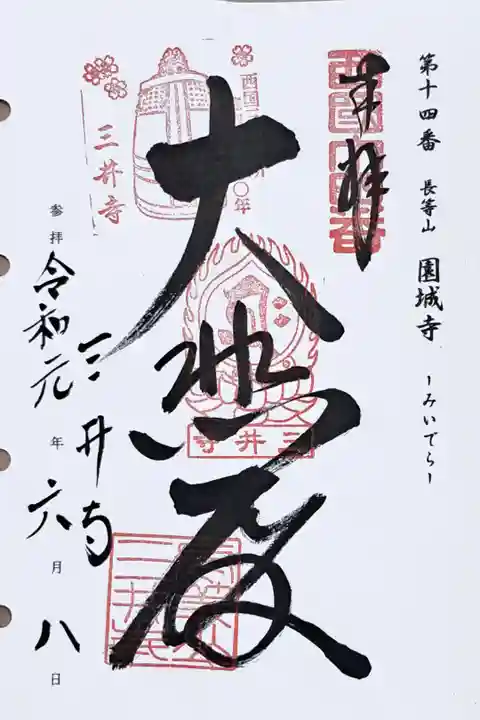 第十四番 長等山 園城寺 ーみいでらー
奉拝
大悲殿
三井寺
参拝 令和元年六月八日
西国
三井寺
三井寺